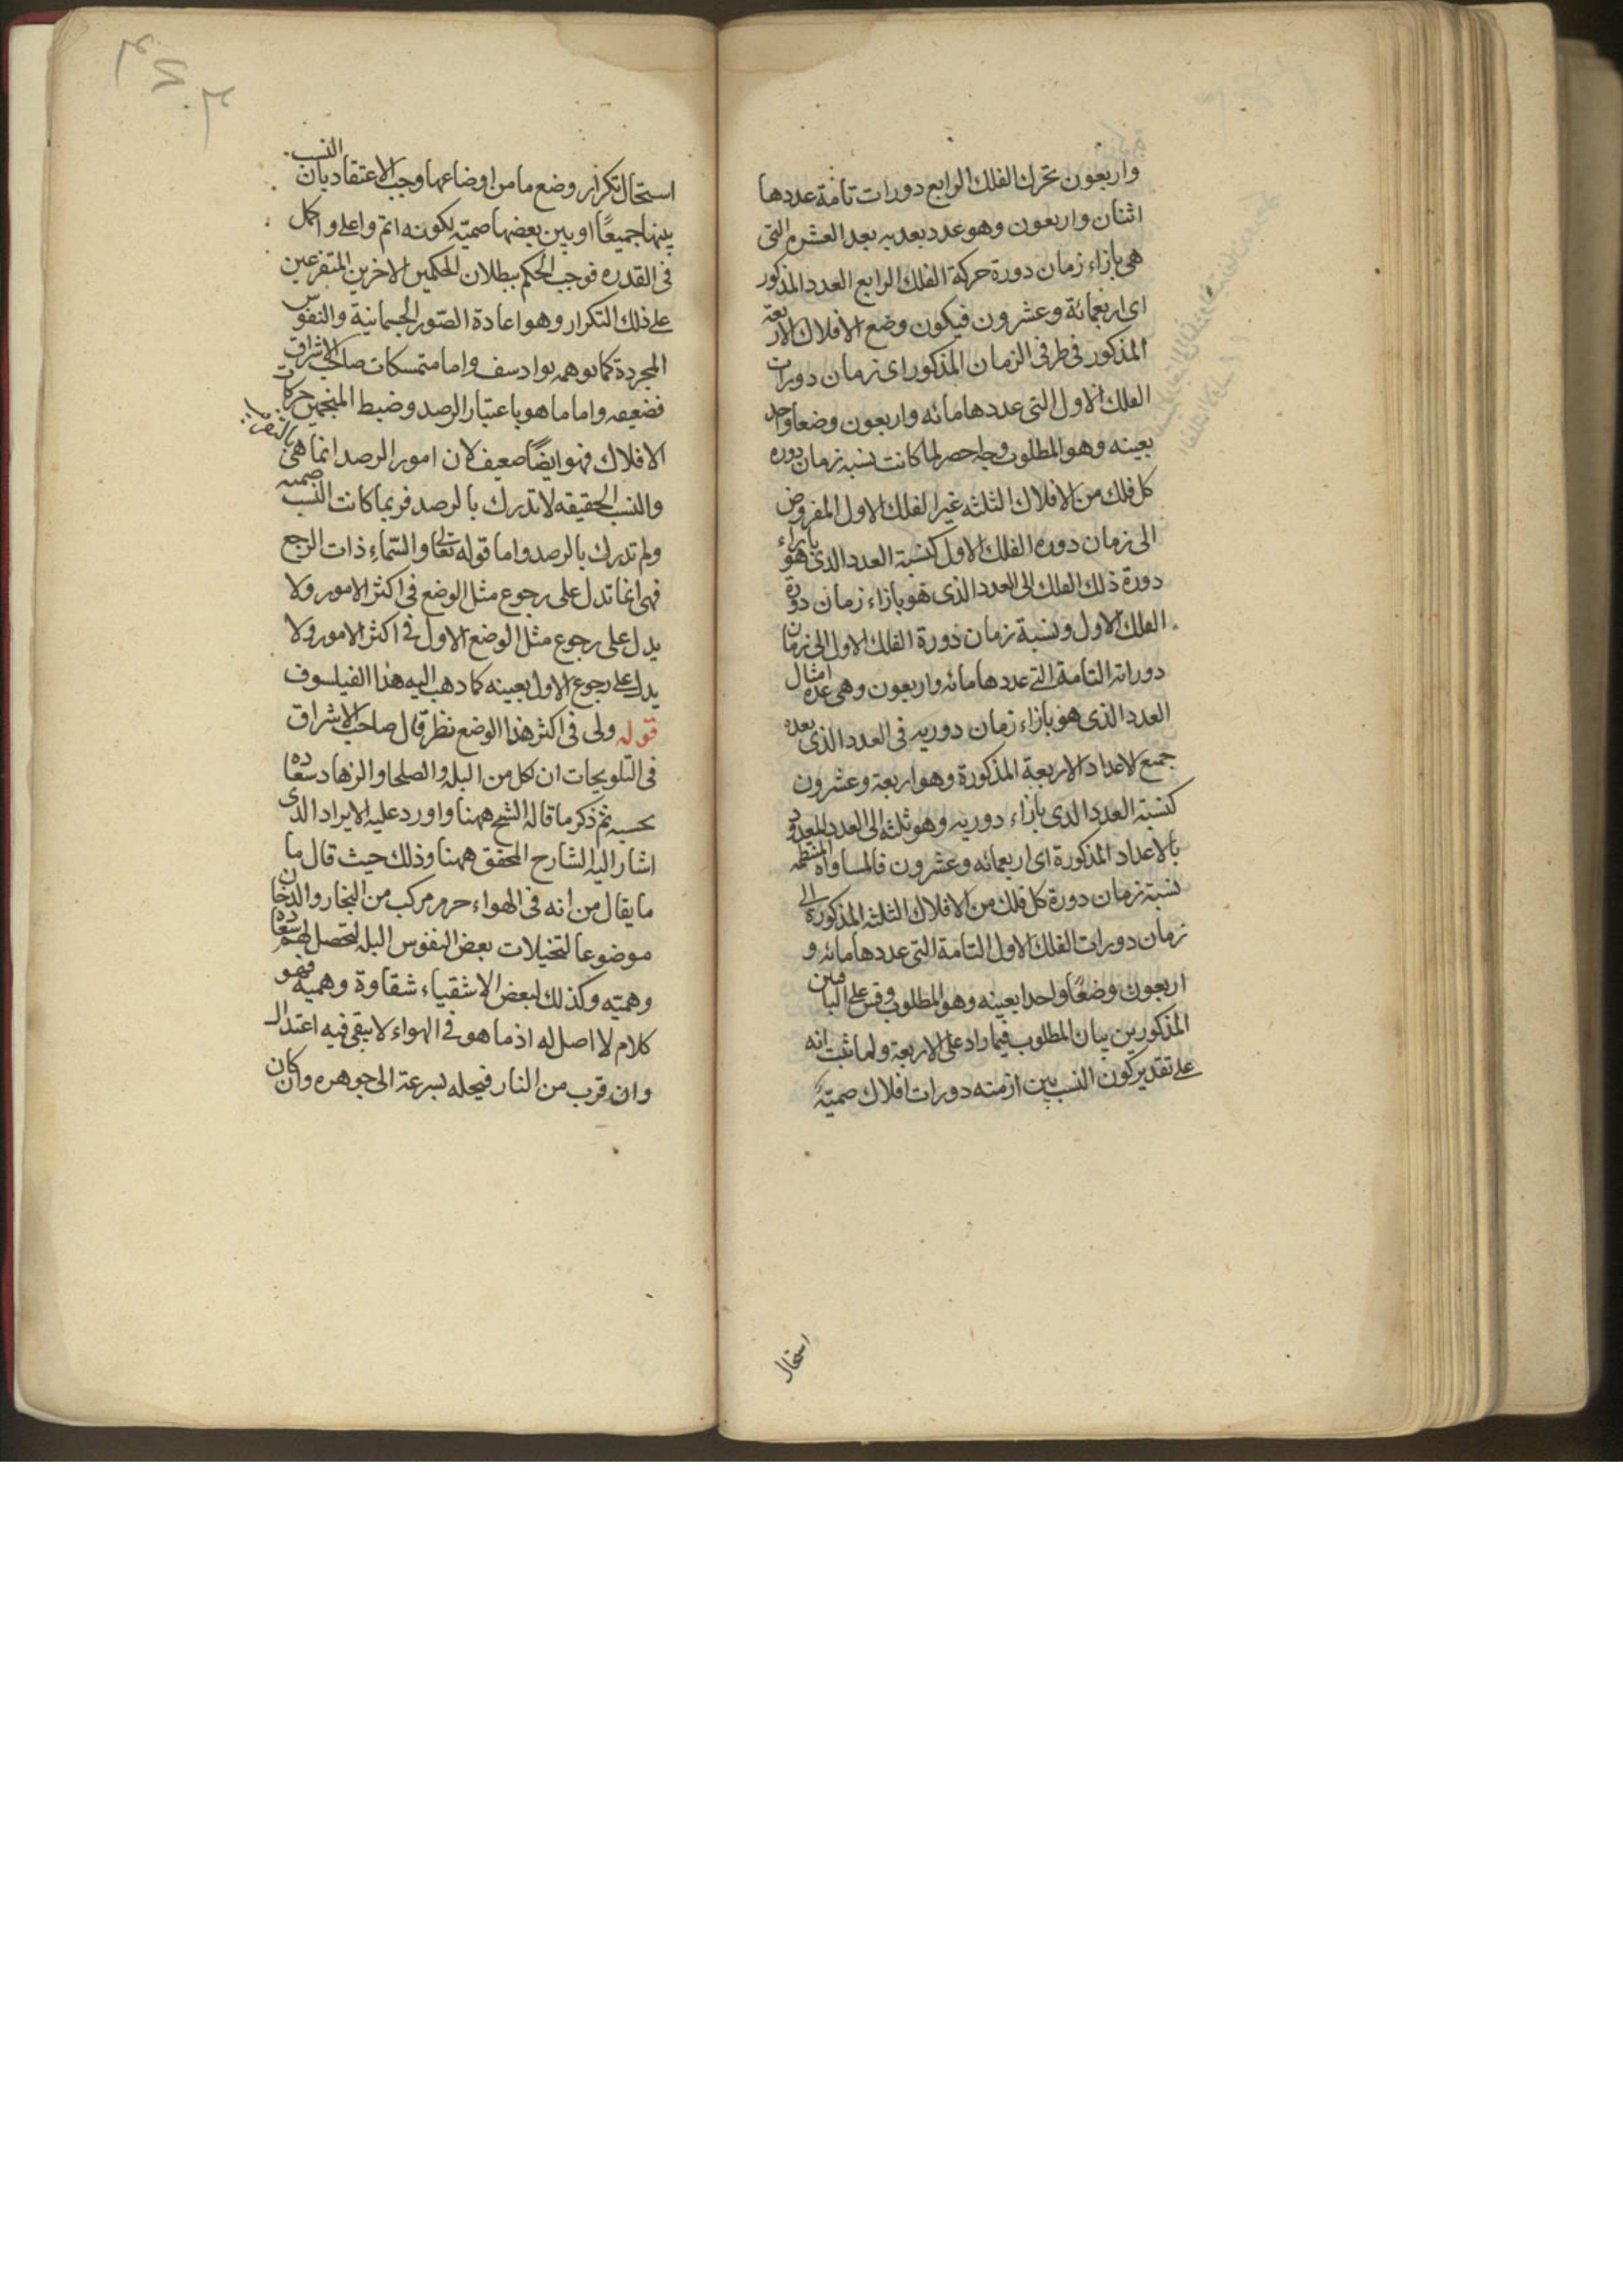 واربعون تحرك الفلك الرابع دورات تامة عددها
اثنان واربعون وهو عدد بعد به بعد العشرة التى
هى بازاء زمان دورة حركة الفلك الرابع العدد المذكور
اى اربعمائة وعشرون فيكون وضع الافلاك الاربعة
المذكور فى طرفى الزمان المذكور اى زمان دورات
الفلك الاول التى عددها مائه واربعون وضعا واحد
بعينه وهو المطلوب وجله حصر لما كانت نسبه زمان دوره
كل فلك من الافلاك الثلثه غير الفلك الاول المفروض
الى زمان دوره الفلك الاول كنسبة العدد الذى هو بازاء
دورة ذلك الفلك الى العدد الذى هو بازاء زمان دورة
الفلك الاول ونسبة زمان دورة الفلك الاول الى زمان
دوراته التامة التى عددها مائه واربعون وهى عدة امثال
العدد الذى هو بازاء زمان دوريه فى العدد الذى بعده
جميع الاعداد الاربعة المذكورة وهو اربعة وعشرون
كنسبة العدد الذى بازاء دوريه وهو ثلثه الى العدد المعدود
بالاعداد المذكورة اى اربعمائه وعشرون فالمساواة المنتظمه
نسبة زمان دورة كل فلك من الافلاك الثلثه المذكورة الى
زمان دورات الفلك الاول التامة التى عددها مائه و
اربعون وضعًا واحدا بعينه وهو المطلوب وقس على البا قين
المذكورين بيان المطلوب فيما زاد على الاربعة ولما ثبت انه
على تقدير كون النسب بين ازمنه دورات افلاك صميّة
استحال
استحال تكرار وضع ما من اوضاعها وجب الاعتقاد بان النسب
بينها جميعًا او بين بعضها صميّه لكونه اتم واعلى واكمل
فى القدره فوجب الحكم ببطلان الحكمين الاخرين المتفرعين
على ذلك التكرار وهو اعادة الصّور الجسمانية والنفوس
المجردة كما توهمه يوادسف واما متمسكات صاحب الاشراق
فضعيفه واما ما هو باعتبار الرصد وضبط المنجمين حركات
الافلاك فهو ايضًا ضعيف لان امور الرصد انما هى بالتقريب
والنسب الحقيقه لا تدرك بالرصد فربما كانت النسب صميه
ولم تدرك بالرصد واما قوله تعالى والسّماء ذات الرجع
فهى انما تدل على رجوع مثل الوضع فى اكثر الامور ولا
يدل على رجوع مثل الوضع الاول فى اكثر الامور ولا
يدل على رجوع الاول بعينه كما ذهب اليه هذا الفيلسوف
قوله ولى فى اكثر هذا الوضع نظر قال صاحب الاشراق
فى التلويحات ان لكل من البله والصلحا والزهاد سعاده
بحسبه ثم ذكر ما قاله الشيخ ههنا واورد عليه الايراد الذى
اشار اليه الشارح المحقق ههنا وذلك حيث قال ما
ما يقال من انه فى الهواء جرم مركب من البخار والدخان
موضوعا لتخيلات بعض النفوس البله لتحصل لهم سعاده
وهميّه وكذلك لبعض الاشقياء شقاوة وهميه فهو
كلام لا اصل له اذ ما هو فى الهواء لا يبقى فيه اعتدال
وان قرب من النار فيحله بسرعة الى جوهره وكان